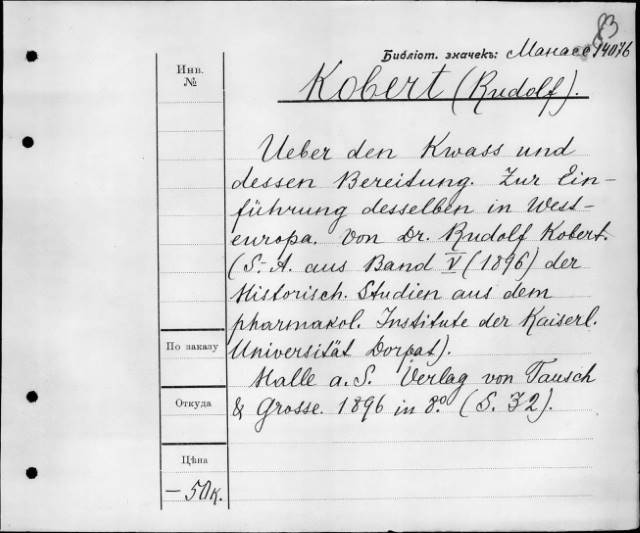 83
Библіот. значекъ: Манасе 14076
Инв.
№
Kobert (Rudolf).
Ueber den Kwass und
dessen Bereitung. Zur Ein-
führung desselben in West-
europa. Von Dr. Rudolf Kobert.
(S.-A. aus Band V (1896) der
Historisch. Studien aus dem
pharmakol. Institute der Kaiserl.
Universität Dorpat).
Halle a. S. Verlag von Tausch
& Grosse. 1896 in 8º (S. 32).
По заказу
Откуда
Цѣна
– 50 к.